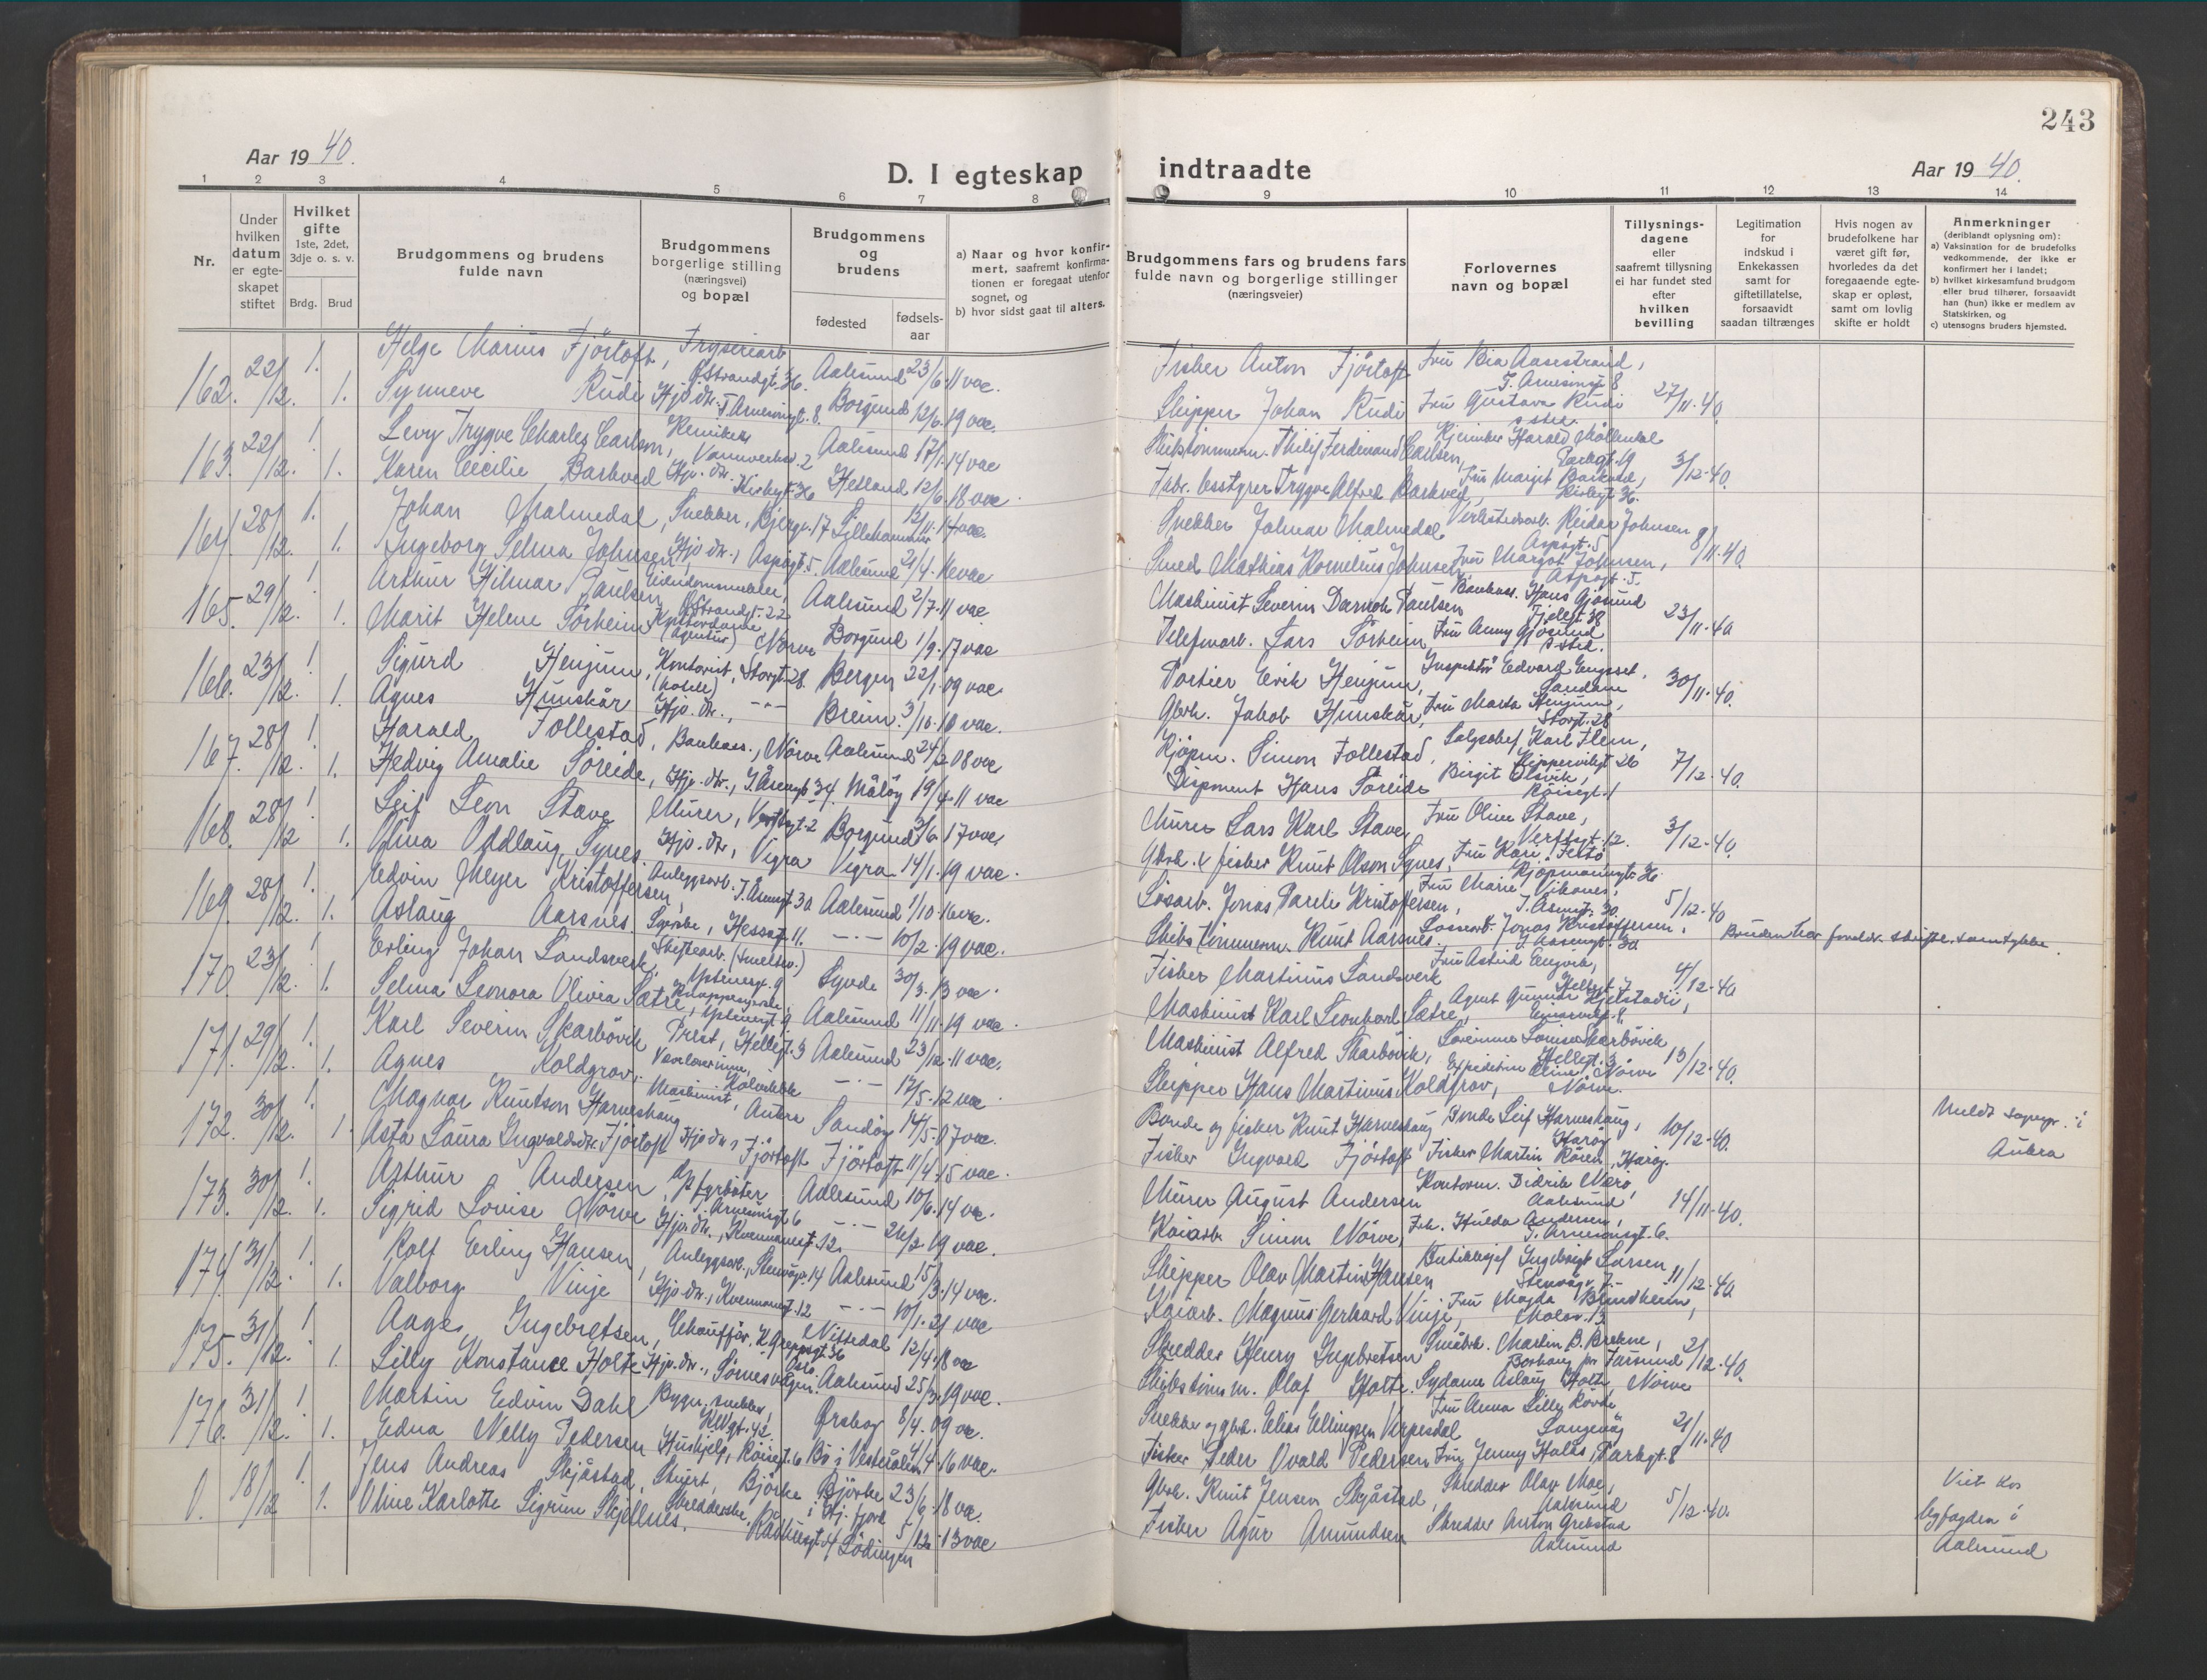 243
Aar 19 40.
D. I egteskap indtraadte
Aar 19 40.
1 2 3 4 5 6 7 8 9 10 11 12 13 14
Nr.
Under hvilken datum er egteskapet stiftet
Hvilket gifte 1ste, 2det, 3dje o. s. v.
Brdg. Brud
Brudgommens og brudens fulde navn
Brudgommens borgerlige stilling (næringsvei) og bopæl
Brudgommens og brudens
fødested
fødselsaar
a) Naar og hvor konfirmert, saafremt konfirmationen er foregaat utenfor sognet, og
b) hvor sidst gaat til alters.
Brudgommens fars og brudens fars fulde navn og borgerlige stillinger (næringsveier)
Forlovernes navn og bopæl
Tillysningsdagene eller saafremt tillysning ei har fundet sted efter hvilken bevilling
Legitimation for indskud i Enkekassen samt for giftetillatelse, forsaavidt saadan tiltrænges
Hvis nogen av brudefolkene har været gift før, hvorledes da det foregaaende egteskap er opløst, samt om lovlig skifte er holdt
Anmerkninger (deriblandt oplysning om):
a) Vaksination for de brudefolks vedkommende, der ikke er konfirmert her i landet;
b) hvilket kirkesamfund brudgom eller brud tilhører, forsaavidt han (hun) ikke er medlem av Statskirken, og
c) utensogns bruders hjemsted.
162. 22/12. 1. Helge Marius Fjörtoft, Fryseriarb. Ø. Strandgt. 36. Aalesund 23/6. 11 vac. Fisker Anton Fjörtoft Fru Bia Aasestrand, T. Arnesensgt 8
1. Synneve Rudi Hjv. dtr. T. Arnesensgt. 8. Borgund 12/6. 19 vac. Skipper Johan Rudi Fru Gustava Rudi 27/11. 40.
163. 22/12. 1. Levy Trygve Charles Carlsen, Aalesund 17/1. 14 vac Skibstömmerm. Philip Ferdinand Carlsen, Harald Möllerdal Parkgt. 19
1. Karen Cecilie Barkved Hjv. dtr. Kirkegt. 36 Hetland 12/6. 18 vac. Fabr. bestyrer Trygve Alfred Barkved, Fru Margit Barkved, Kirkegt 36. 3/12. 40.
164. 28/12. 1. Johan Malmedal, Snekker, Bjergv. 17 Lillehammer 12/11. 17 vac. Snekker Johan Malmedal Verkstedsarb. Reidar Johnsen Aspøgt. 5
1. Ingeborg Selma Johnsen Hjv. dtr., Aspøgt. 5. Aalesund 21/4. 16 vac Smed Mathias Kornelius Johnsen Fru Margot Johnsen, Aspøgt. 5. 8/11. 40
165. 29/12. 1. Arthur Hilmar Paulsen Eiendomsmekler, Ø Strandgt. 22 Aalesund 2/7. 11 vac. Maskinist Severin Paulsen Bankass. Hans Gjøsund Fjellgt 38
1. Marit Helene Sörheim Kontordame (Agentur) Nörve Borgund 1/9. 17 vac Telefonarb. Lars Sörheim Fru Anny Gjösund 23/11. 40
166. 23/12. 1. Sigurd Henjum, Kontorist, Storgt. 28 (hotell) Bergen 22/1. 09 vac. Portier Erik Henjum, Inspektör Edvard Engeset,
1. Agnes Hunskår Hjv. dtr., -"- Breim 3/10. 10 vac. Gbrk. Jakob Hunskår, Fru Marta Henjum, Storgt. 28 30/11. 40.
167. 28/12. 1. Harald Follestad, Bankass., Nörve Aalesund 24/2 08 vac. Kjöpm. Simon Follestad, Salgschef Karl Flem, Skippervikgt 26
1. Hedvig Amalie Söreide, Hjv. dtr., I. Åsengt 34. Måløy 19/4. 11 vac Disponent Hans Söreide Birgit Olsvik, Röisegt. 1 7/12. 40.
168. 28/12 1. Leif Leon Stave Murer, Verftsgt. 2 Borgund 3/6. 17 vac. Murer Lars Karl Stave, Fru Olive Stave, Verftsgt. 12.
1. Olina Oddlaug Synes. Hjv. dtr., Vigra Vigra 14/1. 19 vac. Gbrk. & fisker Knut Olson Synes, Fru Kari 3/12. 40.
169. 28/12. 1. Edvin Meyer Kristoffersen, Anleggsarb. I. Åsengt. 30 Aalesund 1/10. 16 vac. Jonas Parelis Kristoffersen, Fru Marie Vikanes, I. Åsengt. 30.
1. Aslaug Aarsnes. Syerske, Hessagt. 11. -"- 10/2. 19 vac. Skibstömmerm. Knut Aarsnes. Jonas Kristoffersen, I. Aasengt. 30 5/12. 40 Bruden har foreldr. skriftl. samtykke.
170. 23/12. 1. Erling Johan Landsverk, Skoftearb. (Smeltev.) Ystenesgt. 9 Syvde 30/3. 13 vac. Fisker Martinus Landsverk Fru Astrid Engvik, Hellegt. 7
1. Selma Leonora Olivia Sætre, Ystenesgt 9. Aalesund 11/11. 19 vac. Maskinist Karl Leonhard Sætre, Agent Gunnar Kjelstadli, 4/12. 40
171. 29/12. 1. Karl Severin Skarbövik Prest, Hellegt. 3 Aalesund 23/12. 11 vac. Maskinist Alfred Skarbövik, Louise Skarbövik Hellegt. 3
1. Agnes Koldgrov, -"- 17/5. 12 vac Skipper Hans Martinus Koldgrov, Nörve 13/12. 40.
172. 30/12. 1. Magnar Knutson Harneshaug Maskinist, Aukra Sandöy 14/5. 07 vac. Bonde og fisker Knut Harneshaug Bonde Leif Harneshaug, Haröy
1. Asta Laura Ingvaldsdtr. Fjörtoft Hjv dtr, Fjörtoft Fjörtoft 11/4. 15 vac. Fisker Ingvald Fjörtoft Fisker Martin Rören, Haröy. 10/12. 40. Meldt sogner. i Aukra
173. 30/12. 1. Arthur Andersen Hj. fyrböter, T. Arnesensgt 6 Aalesund 10/6. 14 vac. Murer August Andersen Kontorm. Didrik Nerö, Aalesund
1. Sigrid Lovise Nörve Hjv. dtr., Kvennanest. 12. -"- 26/2 19 vac. Kaiarb. Simon Nörve, Frk. Hulda Andersen, T. Arnesensgt. 6. 14/11. 40.
174. 31/12. 1. Rolf Erling Hansen, Anleggsarb., Stenvågv. 14 Aalesund 15/3. 14 vac. Skipper Olav Martin Hansen Butikksjef Ingebrigt Larsen Stenvågv. 7
1. Valborg Vinje Hjv. dtr., Kvennanest. 12 -"- 10/1. 21 vac Kaiarb. Magnus Gerhard Vinje, Fru Magda Blindheim, Molov. 13. 11/12. 40.
175. 31/12. 1. Aage Ingebretsen, Chauffør, Oslo Nittedal 12/4. 18 vac Skredder Henry Ingebretsen Martin B. Brekne, Borhaug pr. Farsund
1. Lilly Konstance Holte Hjv. dtr., Sörnesvågen. Aalesund 25/3. 19 vac. Skibstömm. Olaf Holte. Sydame Aslaug Holte, Nörve 2/12. 40.
176. 31/12. 1. Martin Edvin Dahl Bygn. snekker, Kblgt. 42. Ørskog 8/4. 09 vac. Snekker og gbrk. Elias Ellingsen Verpesdal Fru Anna Lilly Rövde Langevåg
1. Edna Nelly Pedersen Hushjelp, Röisegt. 6 Bö i Vesterålen 4/4. 16 vac. Fisker Peder Ovald Pedersen Fru Jenny Holås, Parkgt. 8 21/11. 40
0. 18/12 1. Jens Andreas Skjåstad, Stuert, Björke Björke i Hj. fjord 23/6. 18 vac. Gbrk. Knut Jensen Skjåstad, Skredder Olav Moe, Aalesund
1. Oline Karlotte Sigrun Skjellnes. Skredderske, Rådhusgt. 4 Lödingen 5/12. 13 vac Fisker Agur Amundsen Skredder Anton Grebstad Aalesund 5/12. 40. Viet hos byfogden i Aalesund